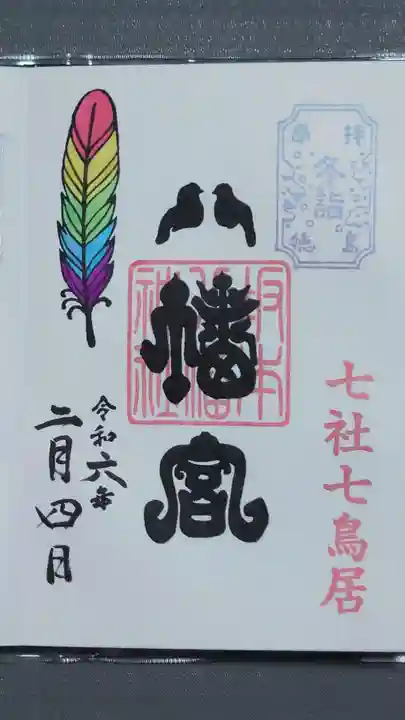 冬詣
七社七鳥居
八幡宮
令和六年
二月四日